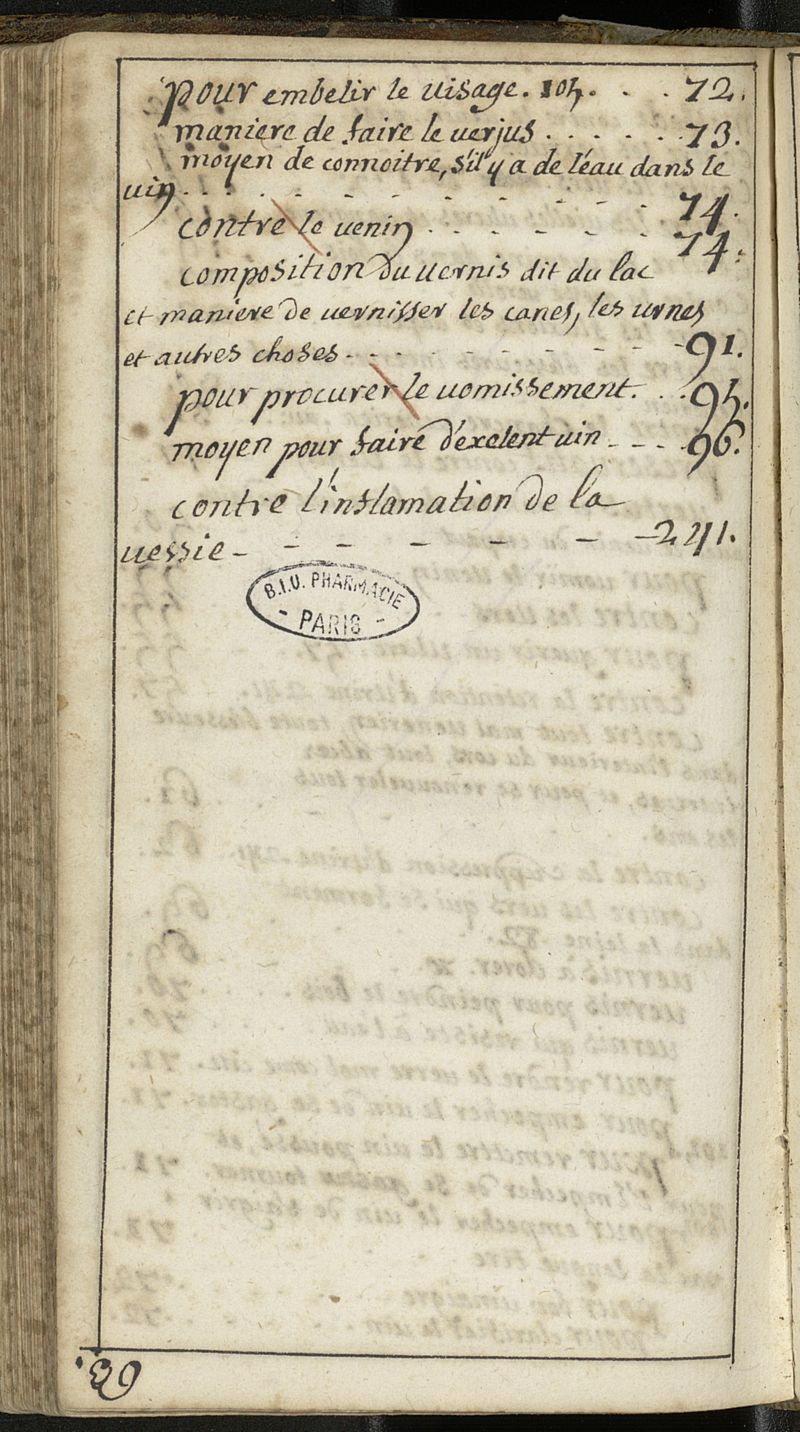 pour embelir le visage. 105. . . . 72.
maniere de faire le verjus . . . . . 73.
moyen de connoitre, s'il y a de l'éau dans le
vin . . . - - - - - - - 74.
contre le venin . - - - - 74.
composition du vernis dit du lac
et maniere de vernisser les canes, les urnes
et autres choses - - - - - - - 91.
pour procurer le vomissement. . . 95.
moyen pour faire d'éxelent vin - - - 96.
contre l'inflamation de la
vessie - - - - - - - 241.
B.I.U. PHARMACIE
- PARIS -